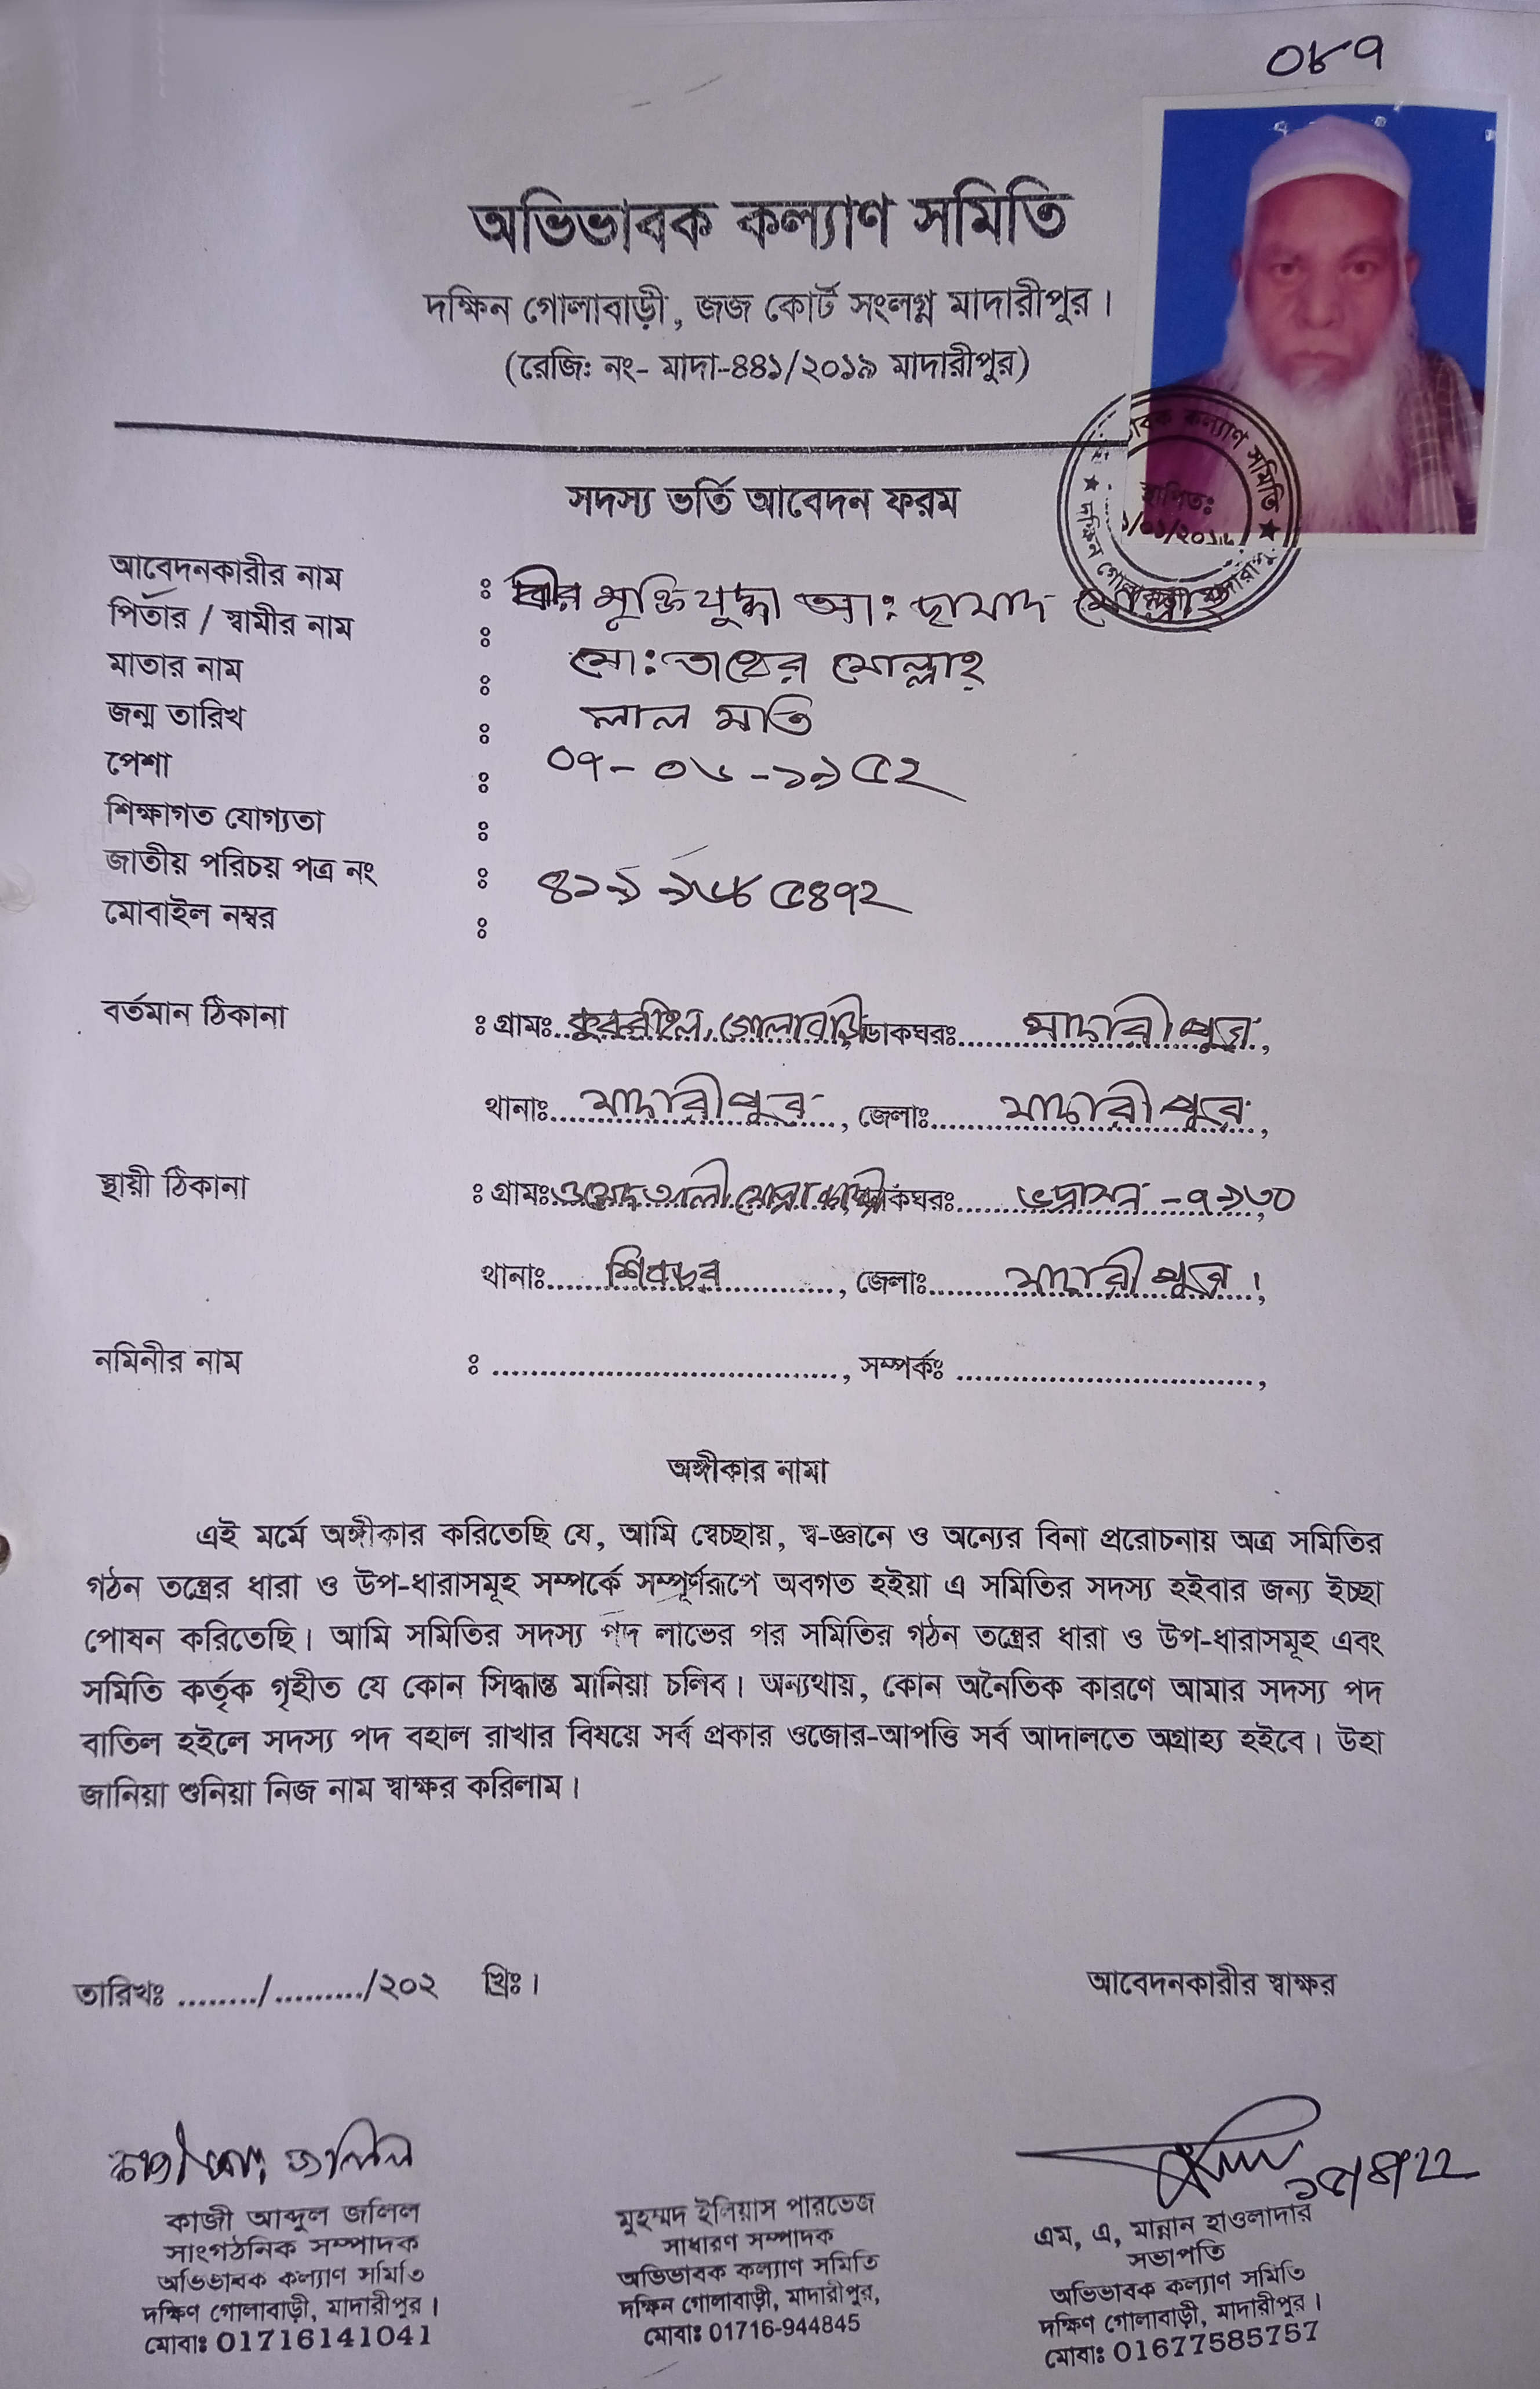 ০৮৭
অভিভাবক কল্যাণ সমিতি
দক্ষিন গোলাবাড়ী, জজ কোর্ট সংলগ্ন মাদারীপুর।
(রেজি: নং- মাদা-৪৪১/২০১৯ মাদারীপুর)
সদস্য ভর্তি আবেদন ফরম
আবেদনকারীর নাম : বীর মুক্তিযুদ্ধা আ: ছামাদ মোল্লাহ্
পিতার / স্বামীর নাম : মো: তাহের মোল্লাহ্
মাতার নাম : লাল মতি
জন্ম তারিখ : ০৭-০৬-১৯৫২
পেশা :
শিক্ষাগত যোগ্যতা :
জাতীয় পরিচয় পত্র নং : ৪১৯৯৬৮৫৪৭২
মোবাইল নম্বর :
বর্তমান ঠিকানা : গ্রামঃ গোলাবাড়ী ডাকঘরঃ মাদারীপুর,
থানাঃ মাদারীপুর, জেলাঃ মাদারীপুর,
স্থায়ী ঠিকানা : গ্রামঃ আলী মোল্লা কান্দী ডাকঘরঃ ভদ্রাসন -৭৯৩০
থানাঃ শিবচর, জেলাঃ মাদারীপুর।,
নমিনীর নাম : ........................, সম্পর্কঃ ........................,
অঙ্গীকার নামা
এই মর্মে অঙ্গীকার করিতেছি যে, আমি স্বেচ্ছায়, স্ব-জ্ঞানে ও অন্যের বিনা প্ররোচনায় অত্র সমিতির
গঠন তন্ত্রের ধারা ও উপ-ধারাসমূহ সম্পর্কে সম্পূর্ণরূপে অবগত হইয়া এ সমিতির সদস্য হইবার জন্য ইচ্ছা
পোষন করিতেছি। আমি সমিতির সদস্য পদ লাভের পর সমিতির গঠন তন্ত্রের ধারা ও উপ-ধারাসমূহ এবং
সমিতি কর্তৃক গৃহীত যে কোন সিদ্ধান্ত মানিয়া চলিব। অন্যথায়, কোন অনৈতিক কারণে আমার সদস্য পদ
বাতিল হইলে সদস্য পদ বহাল রাখার বিষয়ে সর্ব প্রকার ওজোর-আপত্তি সর্ব আদালতে অগ্রাহ্য হইবে। উহা
জানিয়া শুনিয়া নিজ নাম স্বাক্ষর করিলাম।
তারিখঃ ......../........./২০২ খ্রিঃ।
আবেদনকারীর স্বাক্ষর
কাজী আব্দুল জলিল
সাংগঠনিক সম্পাদক
অভিভাবক কল্যাণ সমিতি
দক্ষিণ গোলাবাড়ী, মাদারীপুর।
মোবাঃ 01716141041
মুহম্মদ ইলিয়াস পারভেজ
সাধারণ সম্পাদক
অভিভাবক কল্যাণ সমিতি
দক্ষিন গোলাবাড়ী, মাদারীপুর,
মোবাঃ 01716-944845
এম, এ, মান্নান হাওলাদার
সভাপতি
অভিভাবক কল্যাণ সমিতি
দক্ষিণ গোলাবাড়ী, মাদারীপুর।
মোবাঃ 01677585757